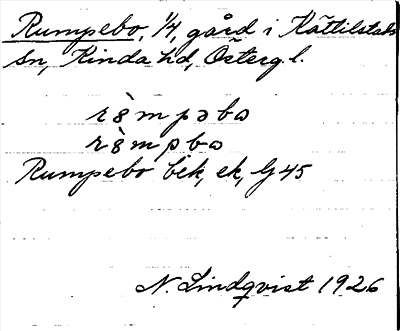 Rumpebo, 1/4, gård i Kättilstads
sn, Kinda hd, Österg. l.
Rumpebo bek, ek, G 45
N. Lindqvist 1926